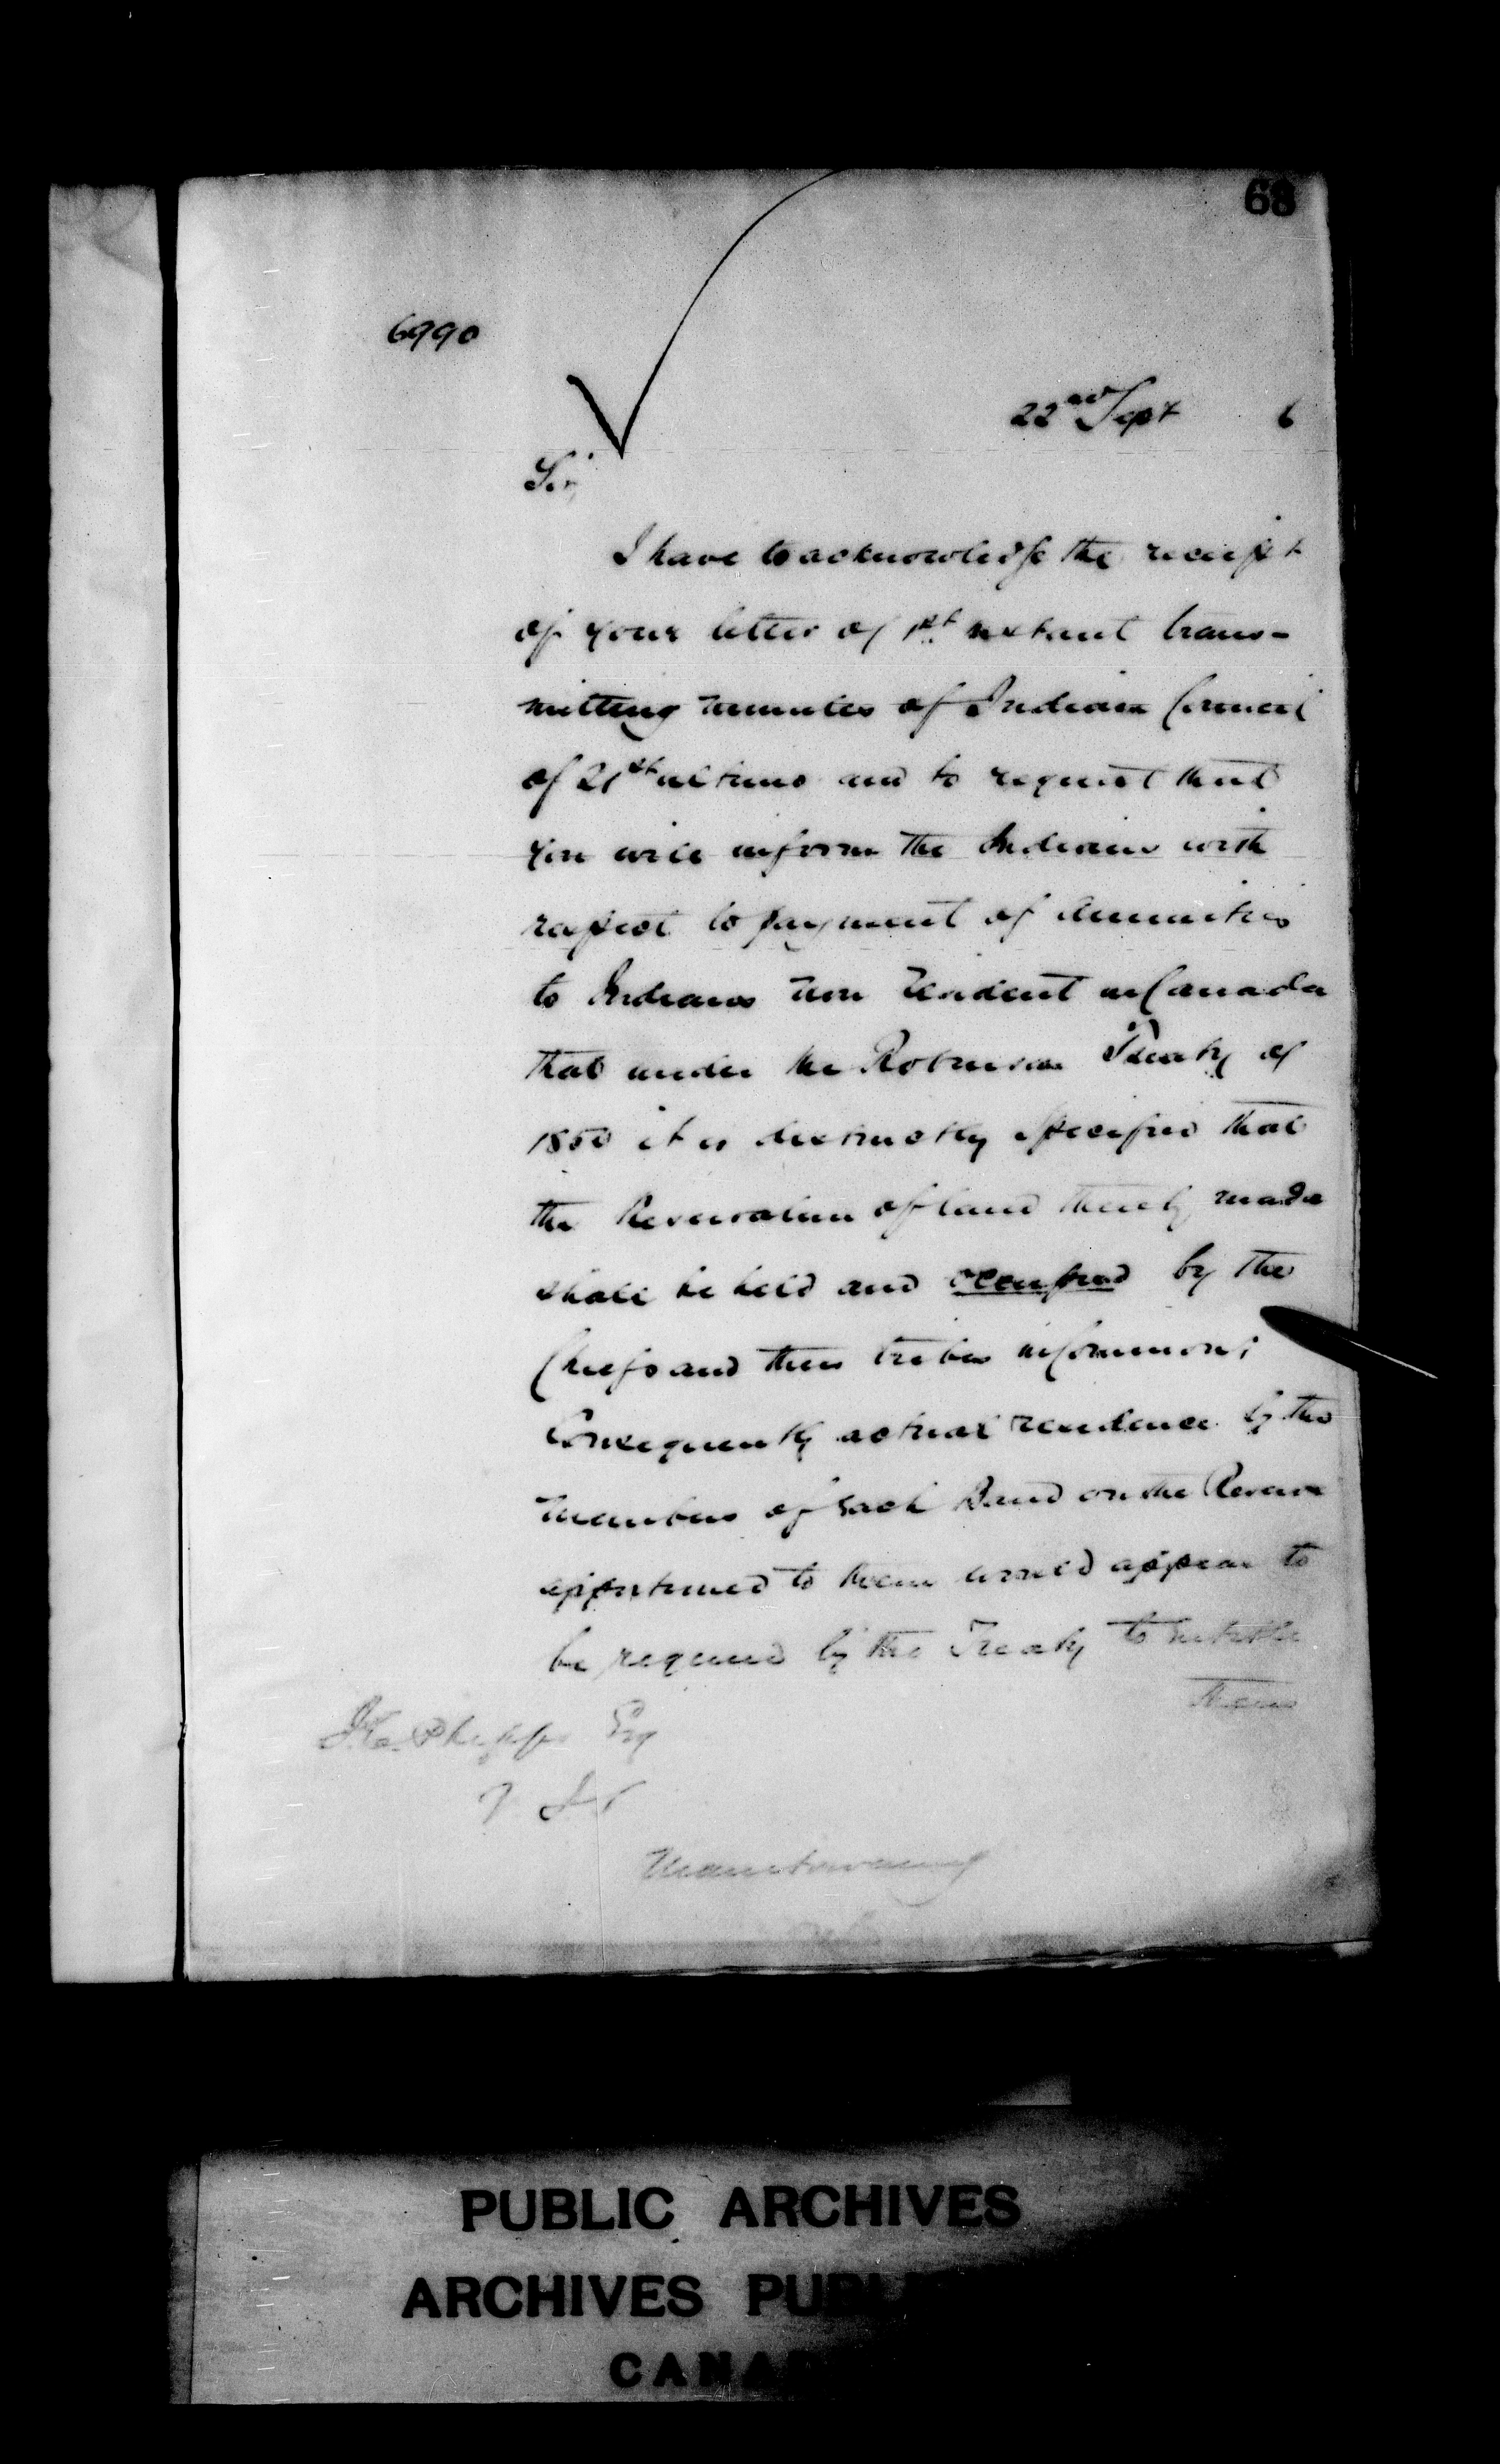 68
6990
22nd Sept 6
Sir,
I have to acknowledge the receipt
of your letter of 1st instant trans-
mitting minutes of Indian Council
of 21st ultimo and to request that
you will inform the Indians with
respect to payment of Annuities
to Indians non resident in Canada
that under the Robinson Treaty of
1850 it is distinctly specified that
the Reservation of land thereby made
shall be held and occupied by the
Chiefs and their tribes in common;
Consequently actual residence by the
members of each Band on the Reserve
apportioned to them would appear to
be required by the Treaty to entitle
them
J.C. Phipps Esq
Manitowaning
PUBLIC ARCHIVES
ARCHIVES PUBL
CANA